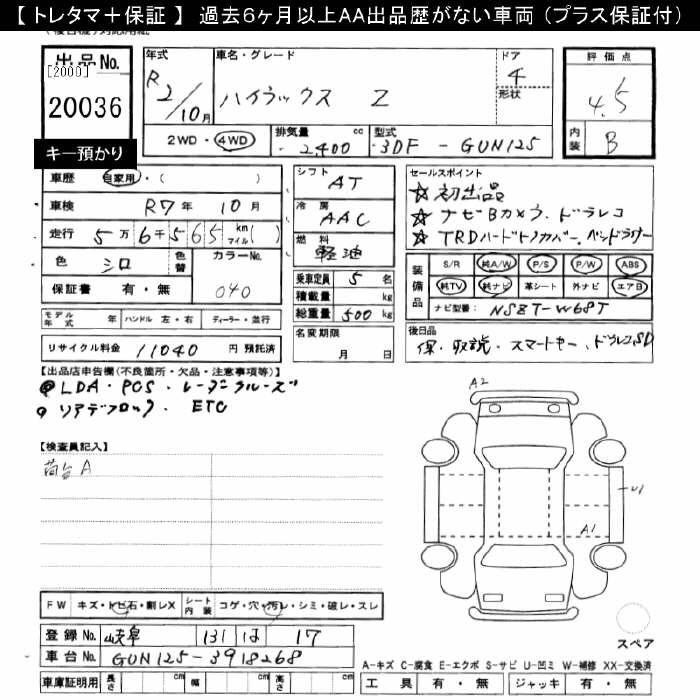 【 トレタマ＋保証 】 過去6ヶ月以上AA出品歴がない車両（プラス保証付）
出品No.
[2000]
20036
キー預かり
年式
R2/10月
車名・グレード
ハイラックス Z
ドア
4
形状
評価点
4.5
内装
B
2WD・4WD
排気量
2,400
cc
型式
3DF - GUN125
車歴
自家用・( )
車検
R7年 10月
走行
5万6千565 km マイル( )
色
シロ
色替
カラーNo.
040
保証書 有・無
モデル年式 年
ハンドル 左・右
ディーラー・並行
リサイクル料金 11040 円 預託済
シフト
AT
冷房
AAC
燃料
軽油
乗車定員 5 名
積載量 kg
総重量 500 kg
名変期限
月 日
セールスポイント
☆初出品
☆ナビBカメラ、ドラレコ
☆TRDハードトノカバー、ベッドラナー
装備品
S/R 純A/W P/S P/W ABS
純TV 純ナビ 革シート 外ナビ エアB
ナビ型番: NSZT-W68T
後日品
保、取説、スマートキー、ドラレコSD
【出品店申告欄(不良箇所・欠品・注意事項等)】
LDA・PCS・レーダークルーズ
リアデフロック、ETC
【検査員記入】
荷台A
A2
U1
A1
スペア
FW キズ・トビ石・割レX
シート内装 コゲ・穴・汚レ・シミ・破レ・スレ
登録No. 岐阜 131 は 17
車台No. GUN125-3918268
車庫証明用 長さ cm 幅 cm 高さ cm
A-キズ C-腐食 E-エクボ S-サビ U-凹ミ W-補修 XX-交換済
工具 有・無 ジャッキ 有・無